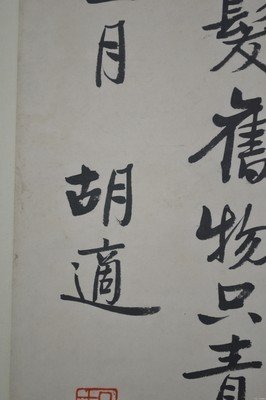 髮舊物只青
月
胡適